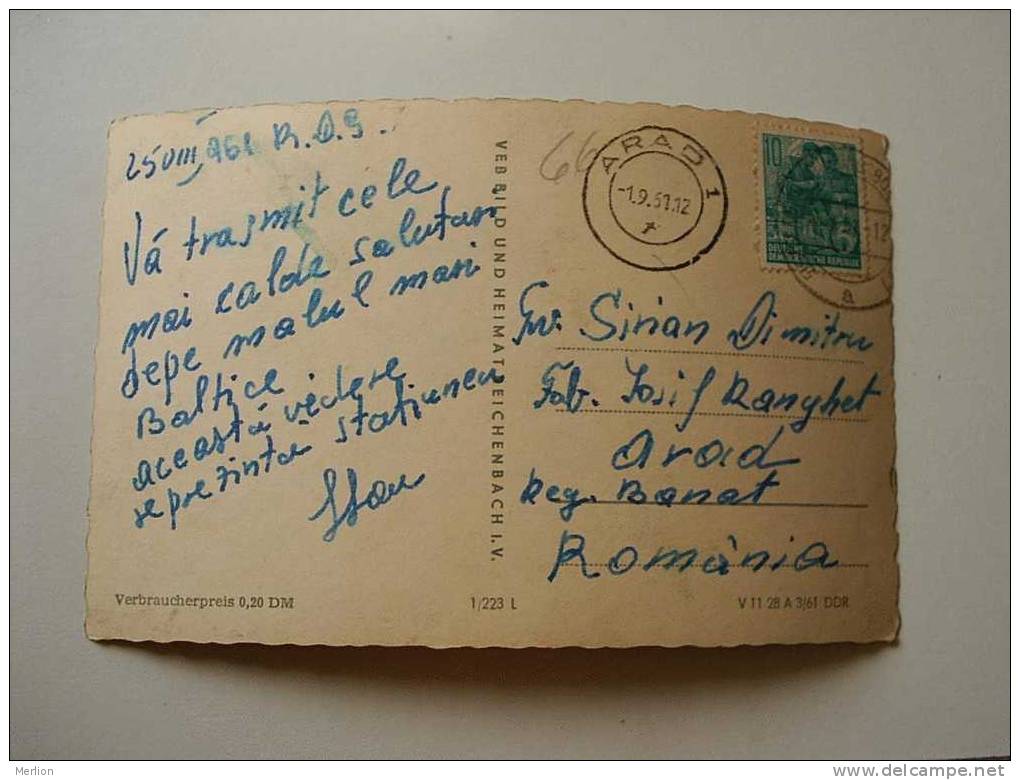 25 VIII 961 R.D.G.
Vá trasmit cele
mai calde salutari
depe malul marii
Baltice
această vedere
reprezintă statiunea
VEB BILD UND HEIMAT REICHENBACH I. V.
66
ARAD 1
-1.9.61.12
10
5
DEUTSCHE
DEMOKRATISCHE REPUBLIK
a
Sirian Dimitru
Fab. Iosif Ranghet
Arad
Reg. Banat
România
Verbraucherpreis 0,20 DM
1/223 L
V 11 28 A 3/61 DDR
Merlion
www.delcampe.net